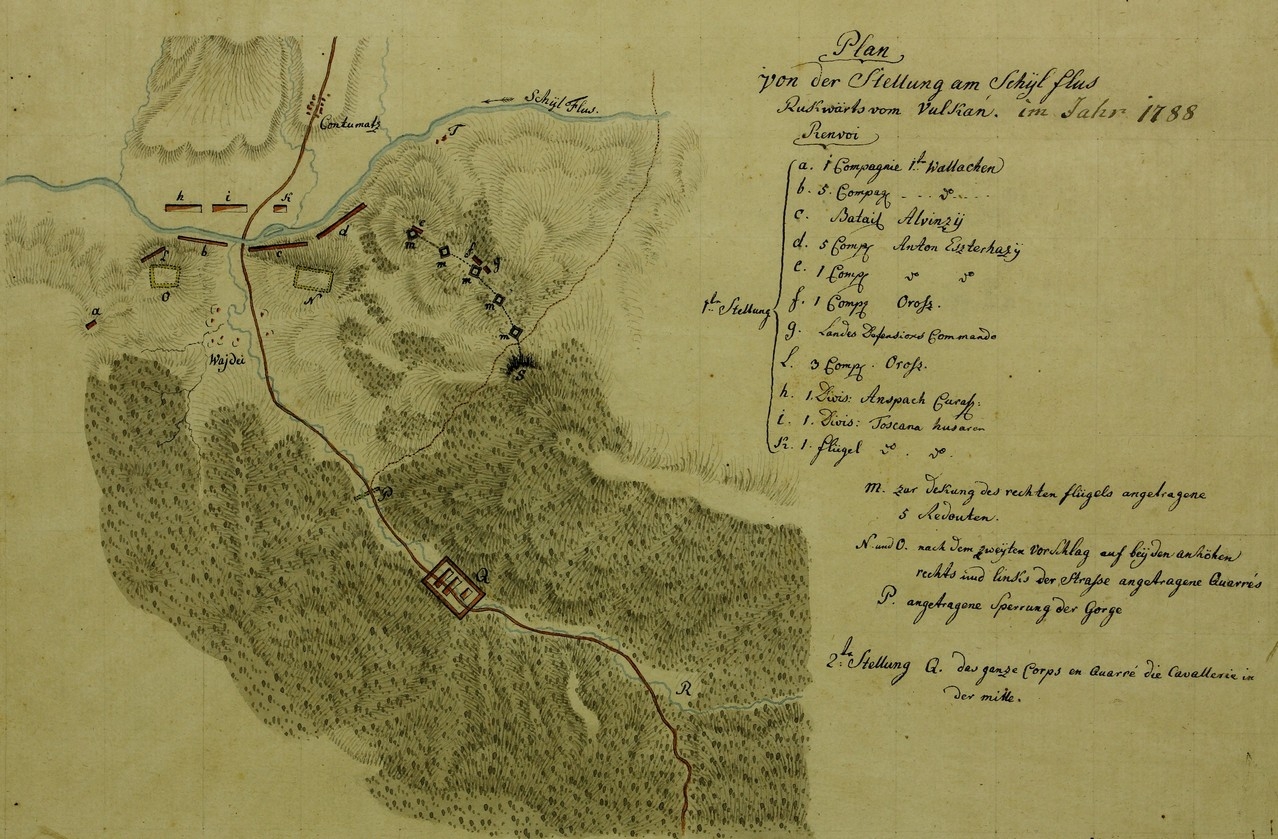 Plan
von der Stellung am Schÿl flus
Rukwärts vom Vulkan. im Jahr 1788
Renvoi
1te Stellung
a. 1 Compagnie 1te Wallachen
b. 5. Compag - . . do . . .
c. Batail Alvinzÿ
d. 5 Comp Anton Eszterhazÿ
e. 1 Comp do do
f. 1 Comp Orosz.
g. Landes Defensions Commando
l. 3 Comp. Orosz.
h. 1. Divis: Anspach Curass:
i. 1. Divis: Toscana husaren
K. 1. flügel do . do.
m. zur dekung des rechten flügels angetragene
5 Redouten.
N. und O. nach dem zweÿten Vorschlag auf beÿden anhöhen
rechts und links der Strasse angetragene Quarrés
P. angetragene Sperrung der Gorge
2te Stellung Q. das ganze Corps en Quarré die Cavallerie in
der mitte.
Schÿl Flus.
Contumatz
T
h i K
d
e
m
b c
l
m f g
m
O N
m
a
m
Wajdei
S
P
Q
R